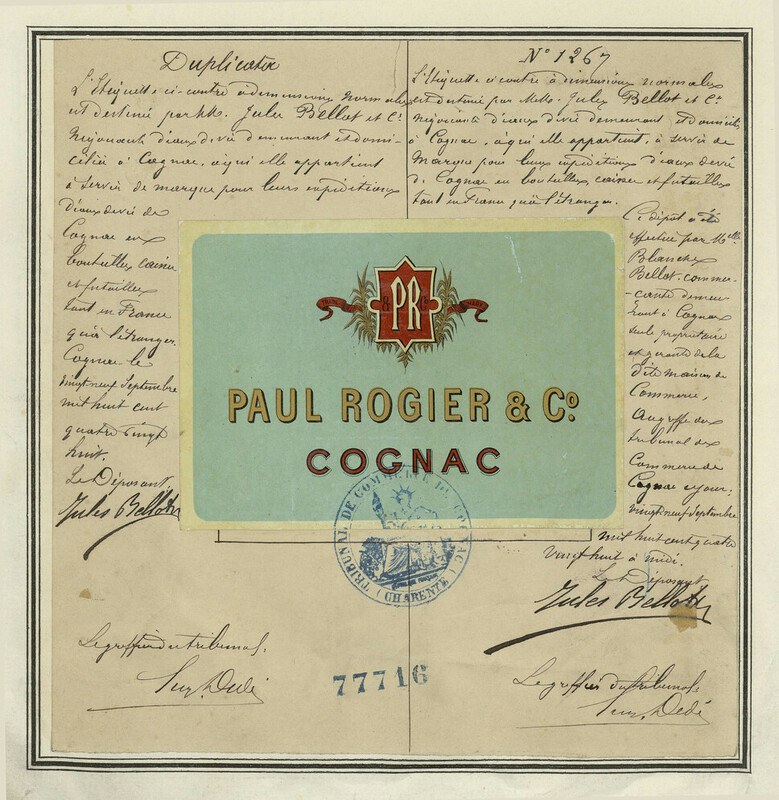 Duplicata
L'Etiquette ci-contre à dimensions normales
est destinée par MM. Jules Bellot et Cie
Négociants d'eaux de vie demeurant et domi-
ciliés à Cognac, à qui elle appartient
à servir de marque pour leurs expéditions
d'eaux de vie de
Cognac en
bouteilles, caisses
et futailles
tant en France
qu'à l'étranger.
Cognac le
vingt neuf Septembre
mil huit cent
quatre vingt
huit.
Le Déposant,
Jules Bellot
Le greffier du tribunal,
Dédé
N° 1267
L'Etiquette ci contre à dimensions normales
est destinée par Jules Bellot et Cie
Négociants d'eaux de vie demeurant et domiciliés
à Cognac, à qui elle appartient, à servir de
Marque pour leurs expéditions d'eaux de vie
de Cognac en bouteilles caisses et futailles
tant en France qu'à l'étranger.
Ce dépôt a été
effectué par Melle
Blanche
Bellot, commer-
-çante demeu
rant à Cognac
seule propriétaire
et gérante de la
dite maison de
Commerce,
au greffe du
tribunal de
Commerce de
Cognac ce jour:
vingt neuf Septembre
mil huit cent quatre
vingt huit à midi.
Le Déposant
Jules Bellot
Le greffier du tribunal
Dédé
TRADE
MARK
& PR Co
PAUL ROGIER & Co.
COGNAC
TRIBUNAL DE COMMERCE DE COGNAC
(CHARENTE)
77716